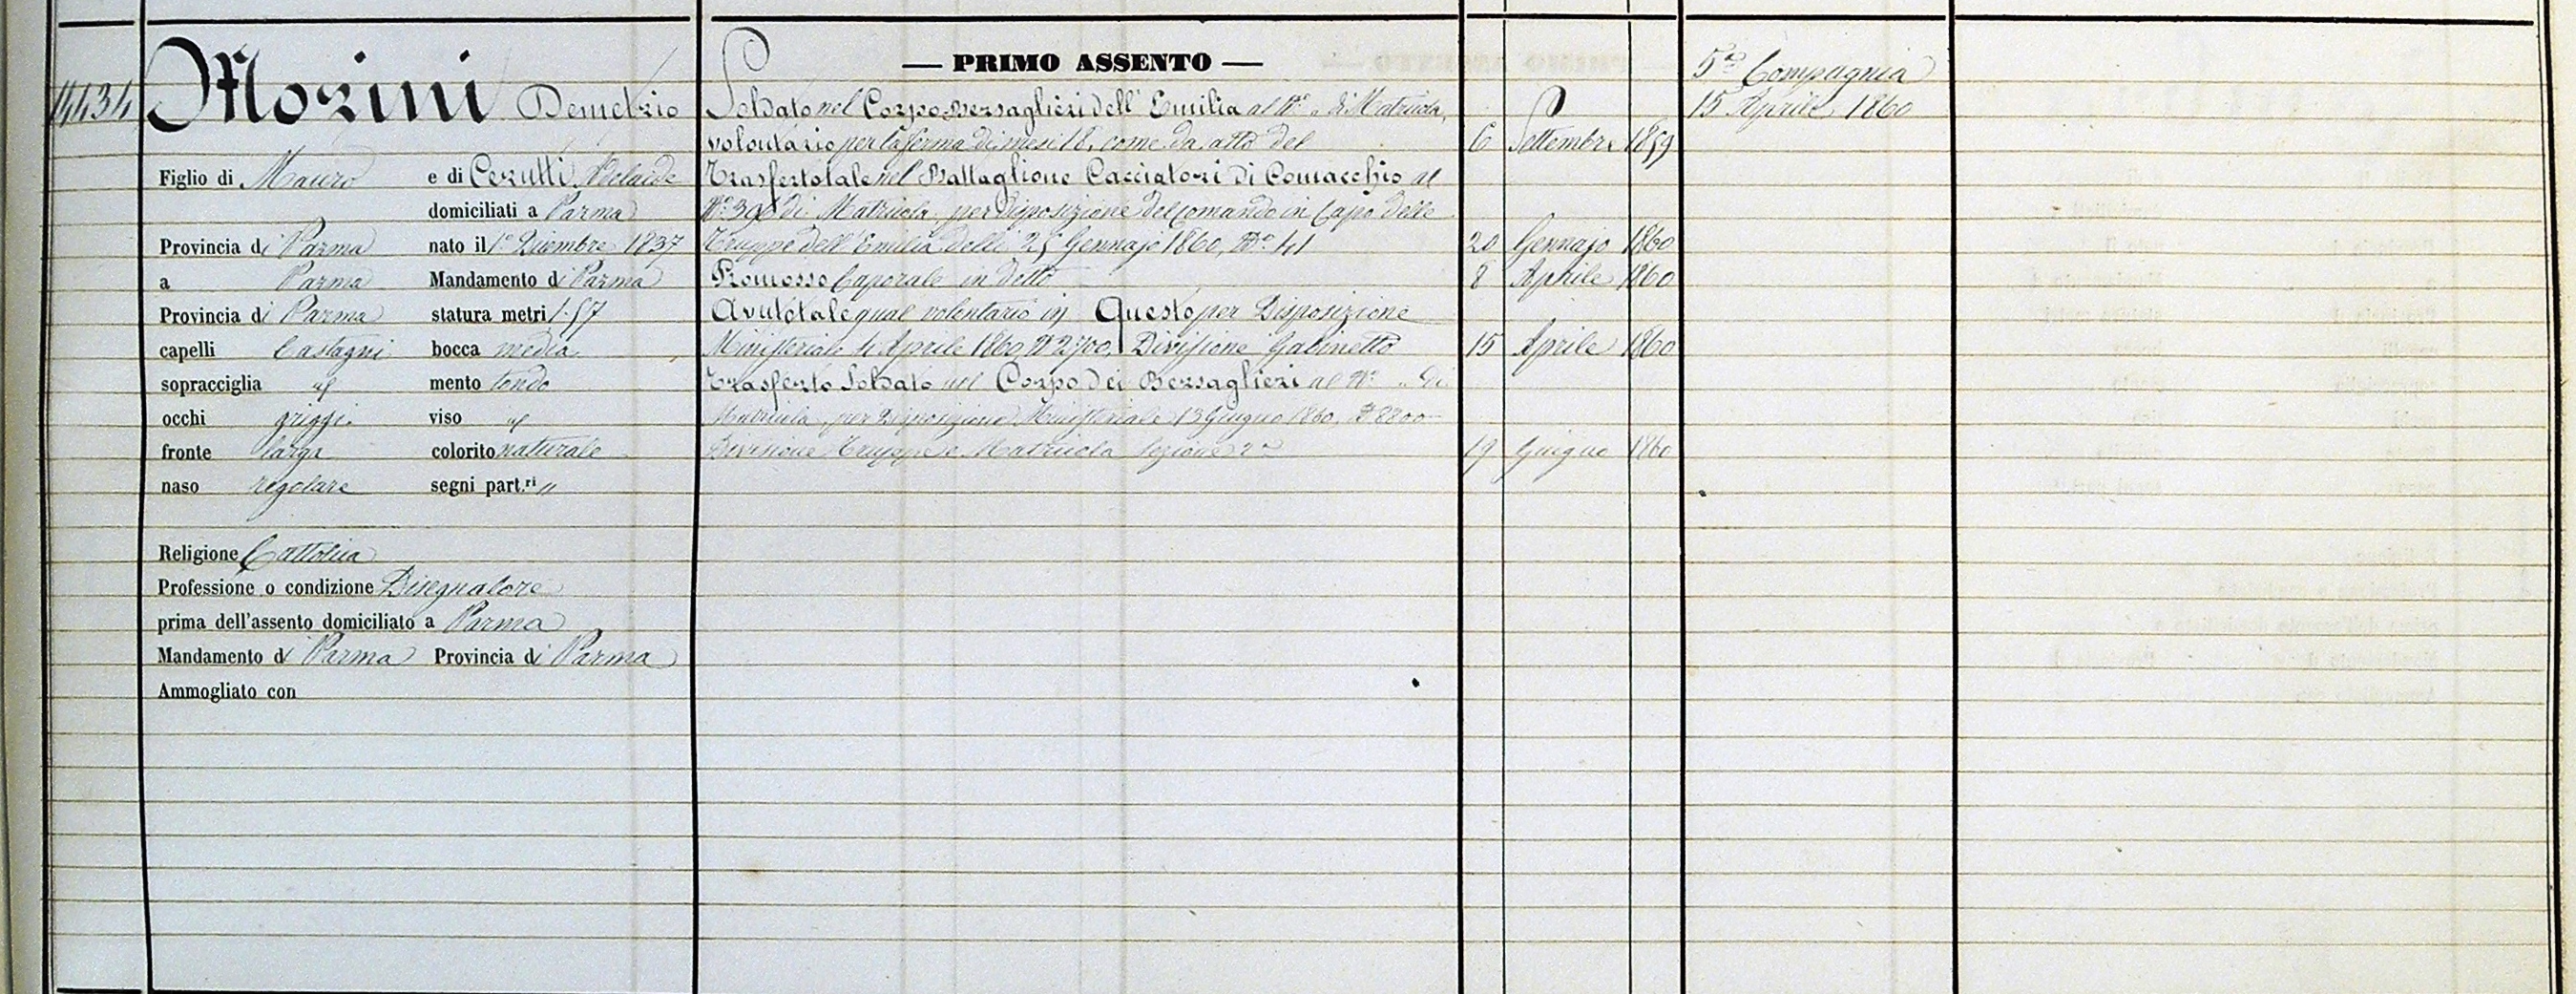 4434
Morini Demetrio
Figlio di Mauro e di Cerutti Adelaide
domiciliati a Parma
Provincia di Parma nato il 1º Dicembre 1837
a Parma Mandamento di Parma
Provincia di Parma statura metri 1.57
capelli Castagni bocca media
sopracciglia id mento tondo
occhi griggi viso id
fronte larga colorito naturale
naso regolare segni part.ri "
Religione Cattolica
Professione o condizione Disegnatore
prima dell'assento domiciliato a Parma
Mandamento di Parma Provincia di Parma
Ammogliato con
— PRIMO ASSENTO —
Soldato nel Corpo Bersaglieri dell'Emilia al Nº " di Matricola,
volontario per la ferma di mesi 18, come da atto del 6 Settembre 1859
Trasferto tale nel Battaglione Cacciatori di Comacchio al
Nº di Matricola per disposizione del Comando in Capo delle
Truppe dell'Emilia delli 25 Gennajo 1860, Nº 41 20 Gennajo 1860
Promosso Caporale in detto 8 Aprile 1860
Avuto tale qual volontario in Questo per Disposizione
Ministeriale 4 Aprile 1860 Nº 2700, Divisione Gabinetto 15 Aprile 1860
Trasferto Soldato nel Corpo dei Bersaglieri al Nº " di
Matricola, per Disposizione Ministeriale 13 Giugno 1860, Nº 8800
Divisione Truppe e Matricola Sezione 2ª 19 Giugno 1860
5ª Compagnia
15 Aprile 1860